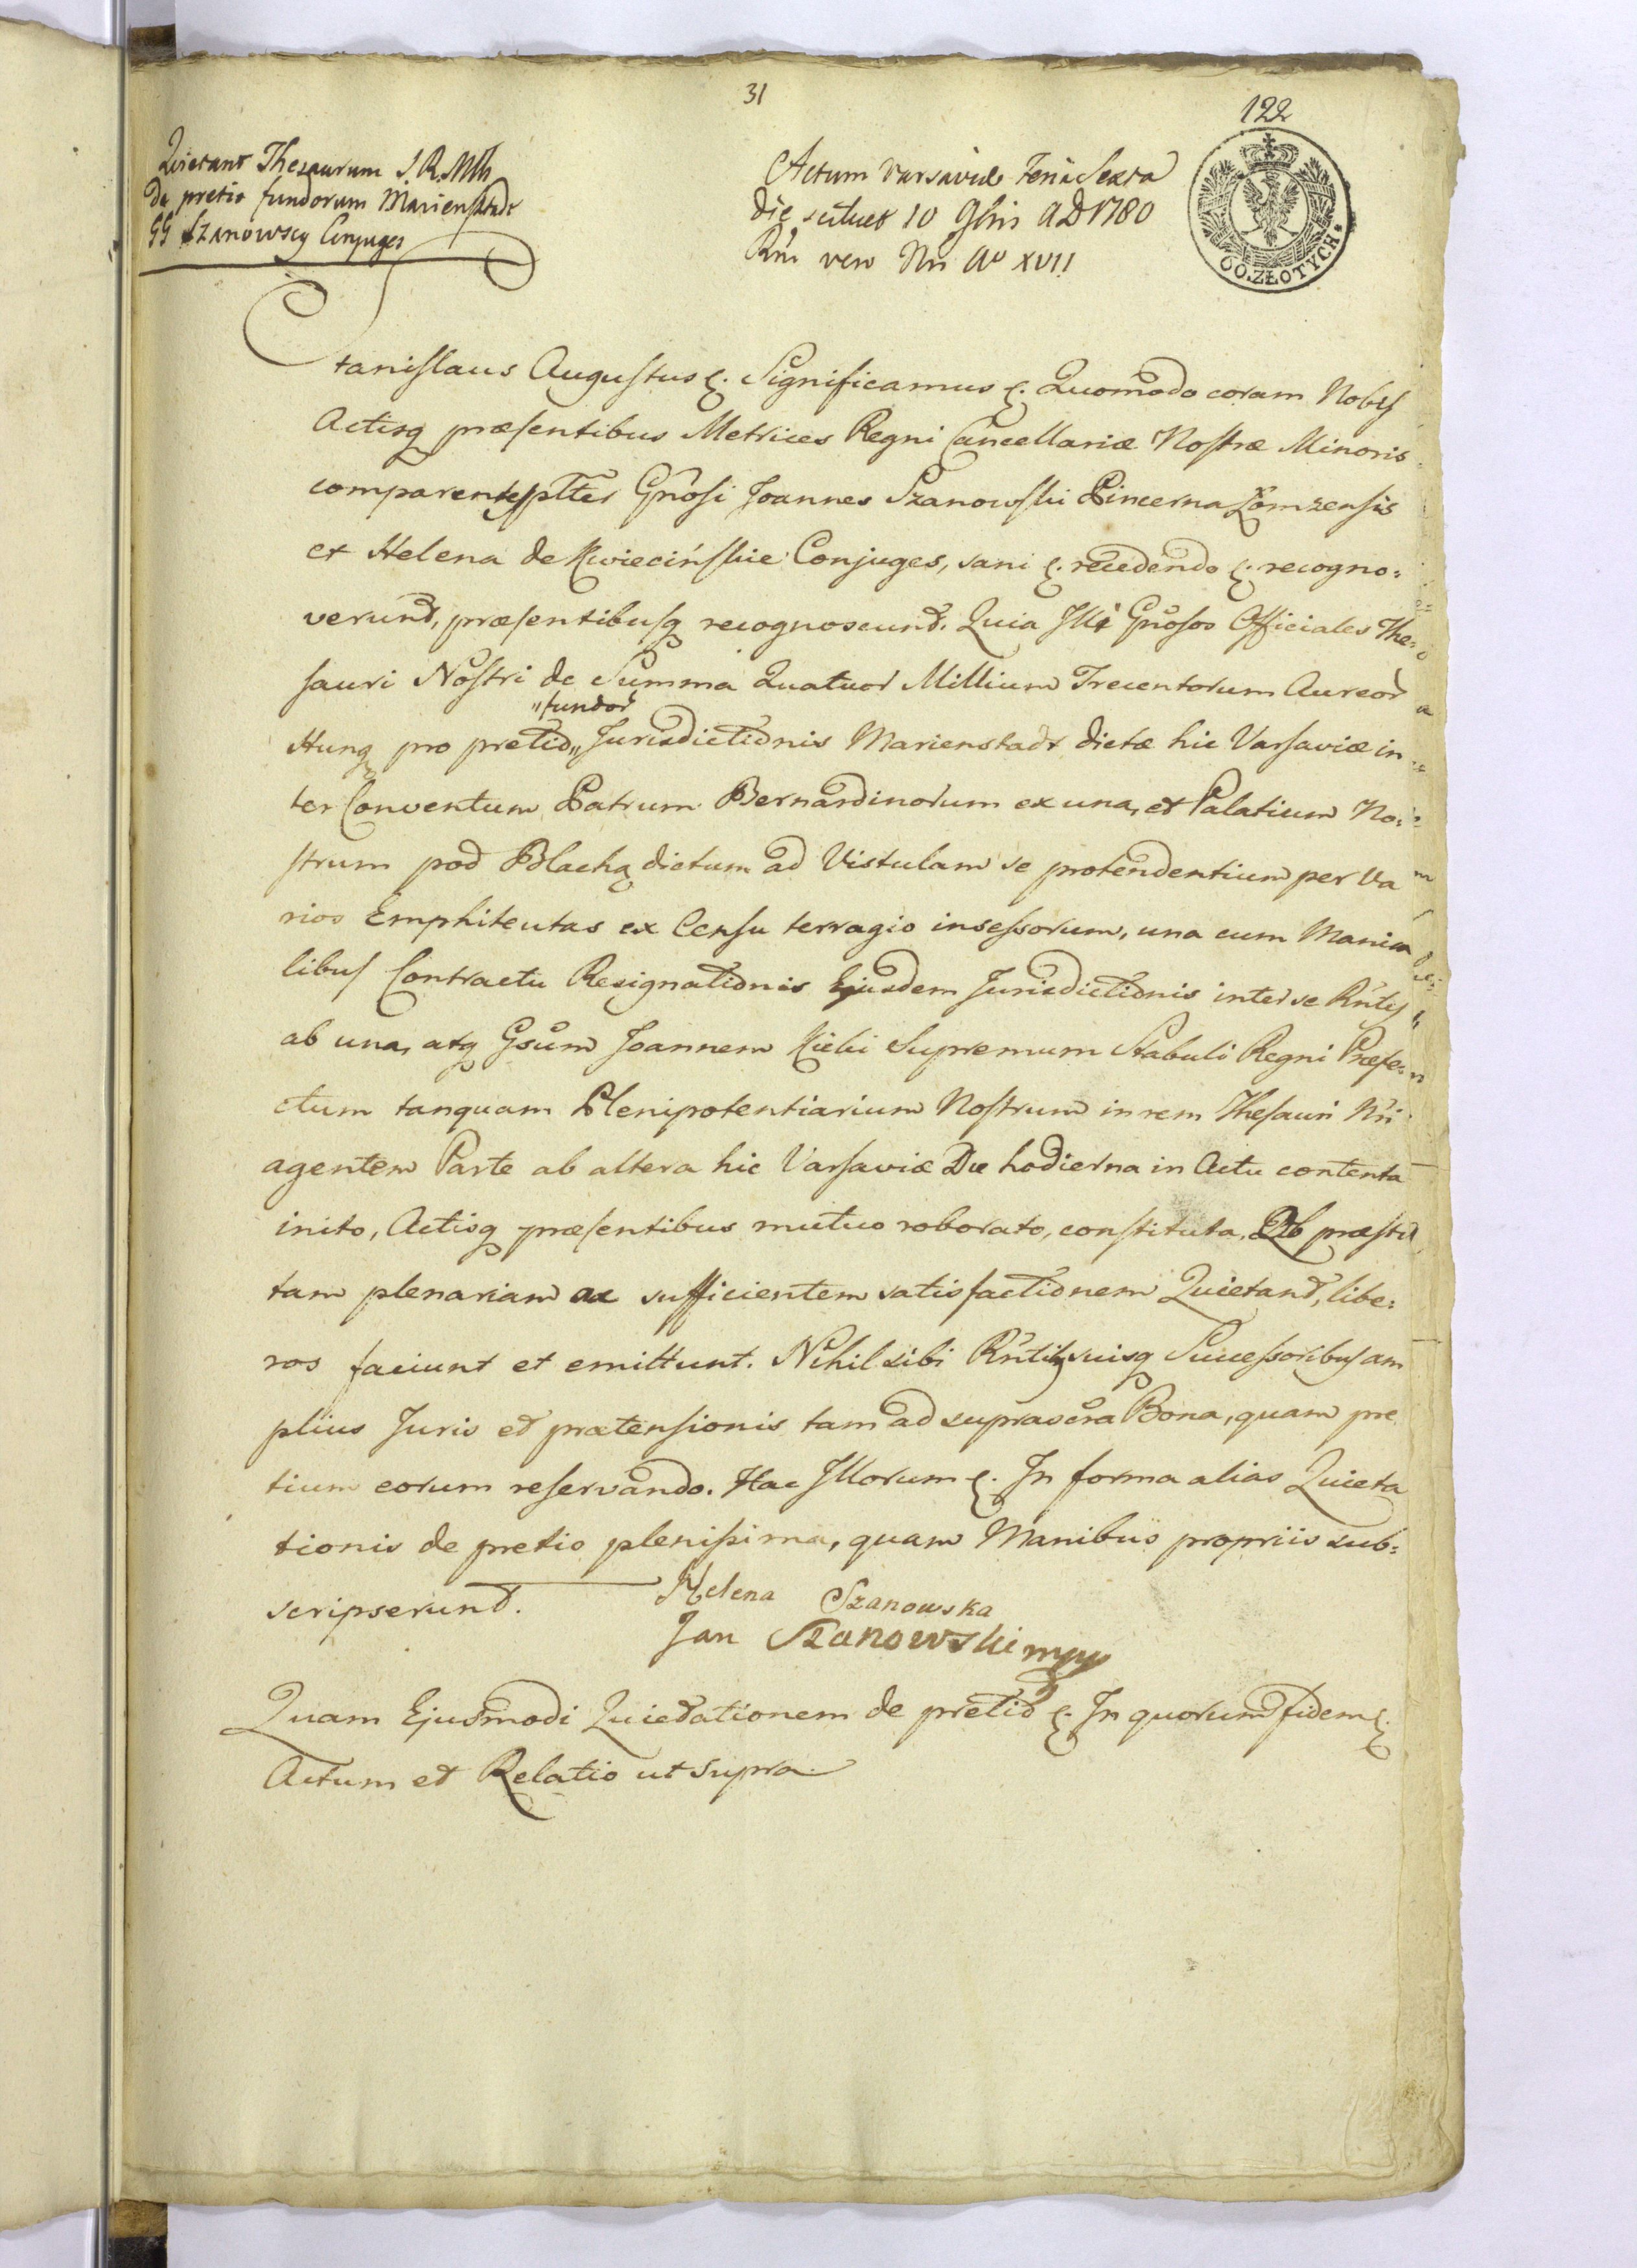 31
122
Quietant Thesaurum S. R. Mtis
De pretio fundorum Marienstadt
GG Szanowscy Conjuges
Actum Varsaviæ Feria Sexta
Die scilicet 10 9bris AD 1780
Rni vero Nri Ao XVII
60. ZŁOTYCH
Staniſlaus Auguſtus &. Significamus &. Quomodo coram Nobis
Actisq præſentibus Metrices Regni Cancellariæ Noſtræ Minoris
comparentes pltter Gnosi Joannes Szanowſki Pincerna Łomzenſis
et Helena de Kwiecińſkie Conjuges, sani &. recedendo &. recogno:
verunt, præſentibuſq recognoscunt. Quia Illi Gnosos Officiales The:
ſauri Noſtri de Summa Quatuor Millium Trecentorum Aureor
"fundor
Hung pro pretio" Jurisdictionis Marienstadt dictæ hic Varſaviæ in
ter Conventum Patrum Bernardinorum ex una, et Palatium No:
ſtrum pod Blachą dictum ad Vistulam se protendentium per Va
rios Emphiteutas ex Cenſu terragio inseſsorum, una cum
libuſ Contractu Resignationis Ejusdem Jurisdictionis inter se Rntes
ab una, atq Gsum Joannem Kicki Supremum Stabuli Regni Præfe:
ctum tanquam Plenipotentiarium Noſtrum in rem Theſauri Nri
agentem Parte ab altera hic Varſaviæ Die hodierna in Actu contenta
inito, Actisq præſentibus mutuo roborato, conſtituta, Ob præſti
tam plenariam ac sufficientem satisfactionem Quietant, libe:
ros faciunt et emittunt. Nihil sibi Rntibq suisq Succeſsoribuſ am
plius Juris et prætenſionis tam ad supra scra Bona, quam pre
tium eorum reſervando. Hac Illorum &. In forma alias Quieta
tionis de pretio pleniſsima, quam Manibus propriis sub:
scripserunt. Helena Szanowska
Jan Szanowski mpp
Quam Ejusmodi Quietationem de pretio &. In quorum fidem &.
Actum et Relatio ut supra.